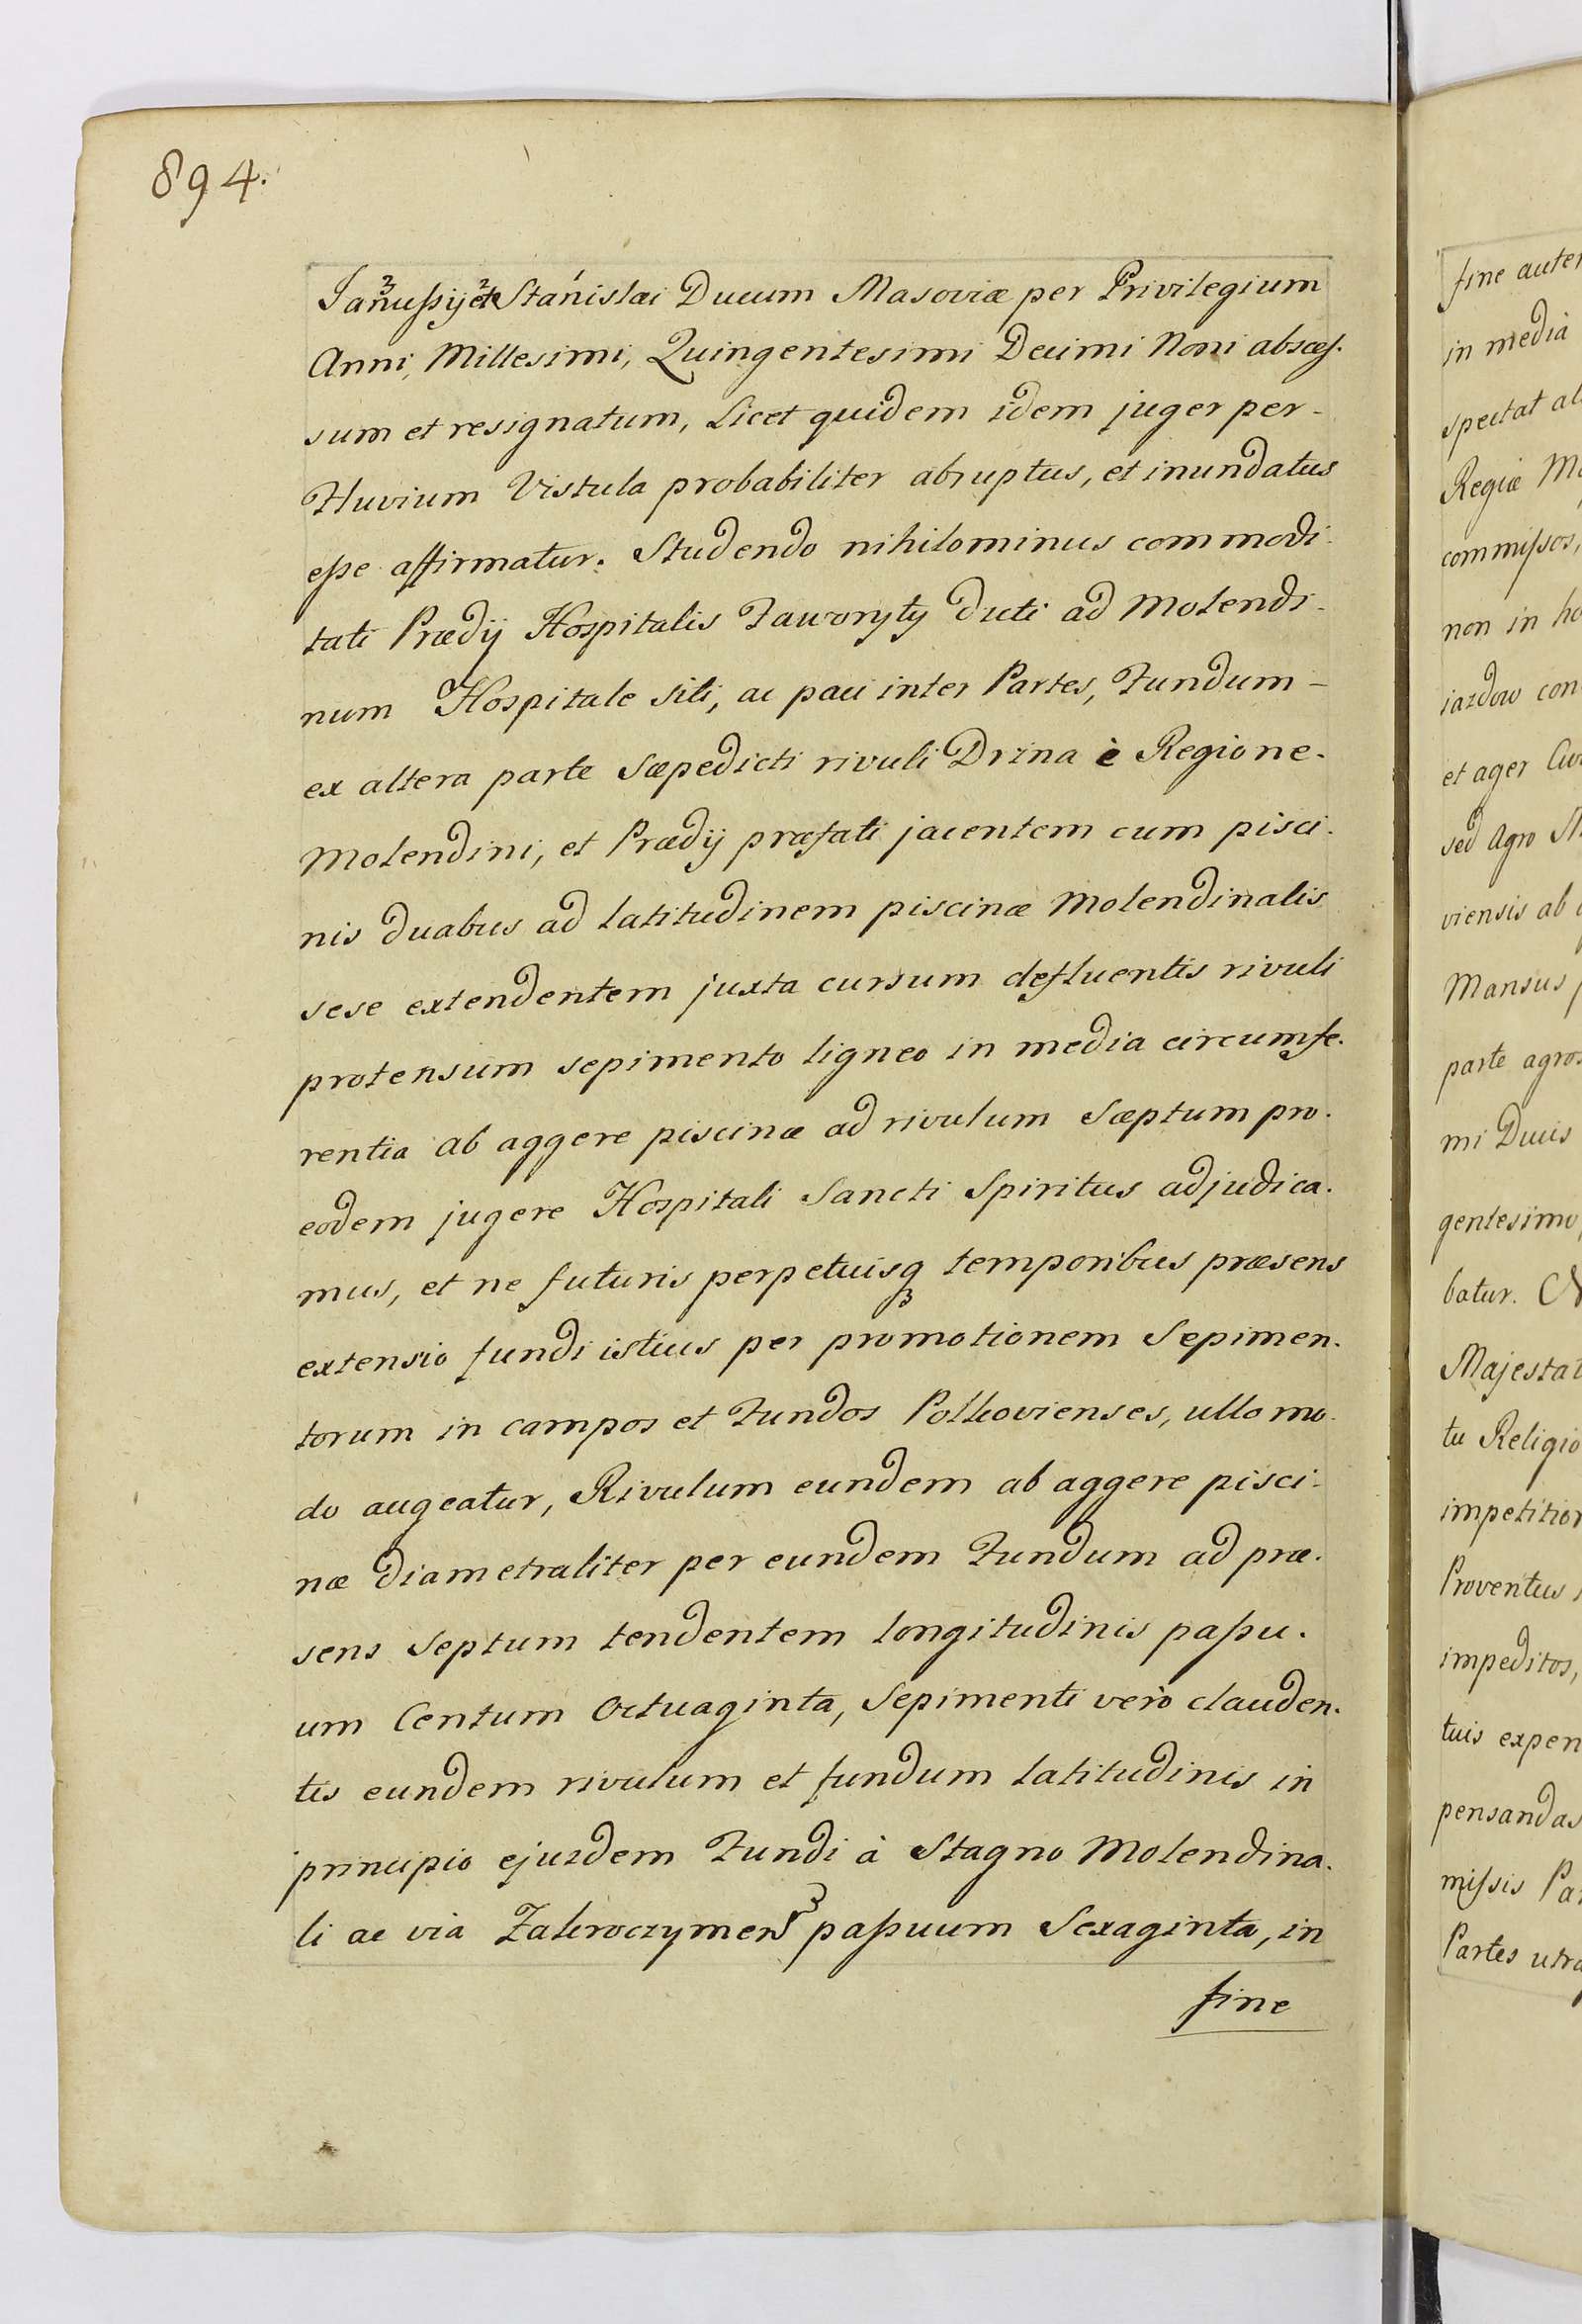 894.
Janussij et Stanislai Ducum Masoviæ per Privilegium
Anni, Millesimi, Quingentesimi Decimi Noni absces-
sum et resignatum, Licet quidem idem juger per-
Fluvium Vistula probabiliter abruptus, et inundatus
esse affirmatur. Studendo nihilominus commodi-
tati Prædij Hospitalis Faworyty dicti ad Molendi-
num Hospitale siti, ac paci inter Partes, Fundum-
ex altera parte Sæpedicti rivuli Drzna è Regione-
Molendini, et Prædij præfati jacentem cum pisci-
nis duabus ad latitudinem piscinæ Molendinalis
sese extendentem juxta cursum defluentis rivuli
protensum sepimento ligneo in media circumfe-
rentia ab aggere piscinæ ad rivulum Sæptum pro-
eodem jugere Hospitali Sancti Spiritus adjudica-
mus, et ne futuris perpetuisq₃ temporibus præsens
extensio fundi istius per promotionem Sepimen-
torum in campos et Fundos Polkovienses, ullo mo-
do augeatur, Rivulum eundem ab aggere pisci-
næ diametraliter per eundem Fundum ad præ-
sens Septum tendentem longitudinis passu-
um Centum Octuaginta, Sepimenti verò clauden-
tis eundem rivulum et fundum latitudinis in
principio ejusdem Fundi à Stagno Molendina-
li ac via Zakroczymens passuum Sexaginta, in
fine
fine
in media
spectat
Regiæ
commissos,
non in
iazdow
et ager
sed Agro
viensis ab
Mansus
parte
mi Ducis
gentesimo
batur.
tu
Proventus
impeditos,
tuis
pensandas
missis
Partes